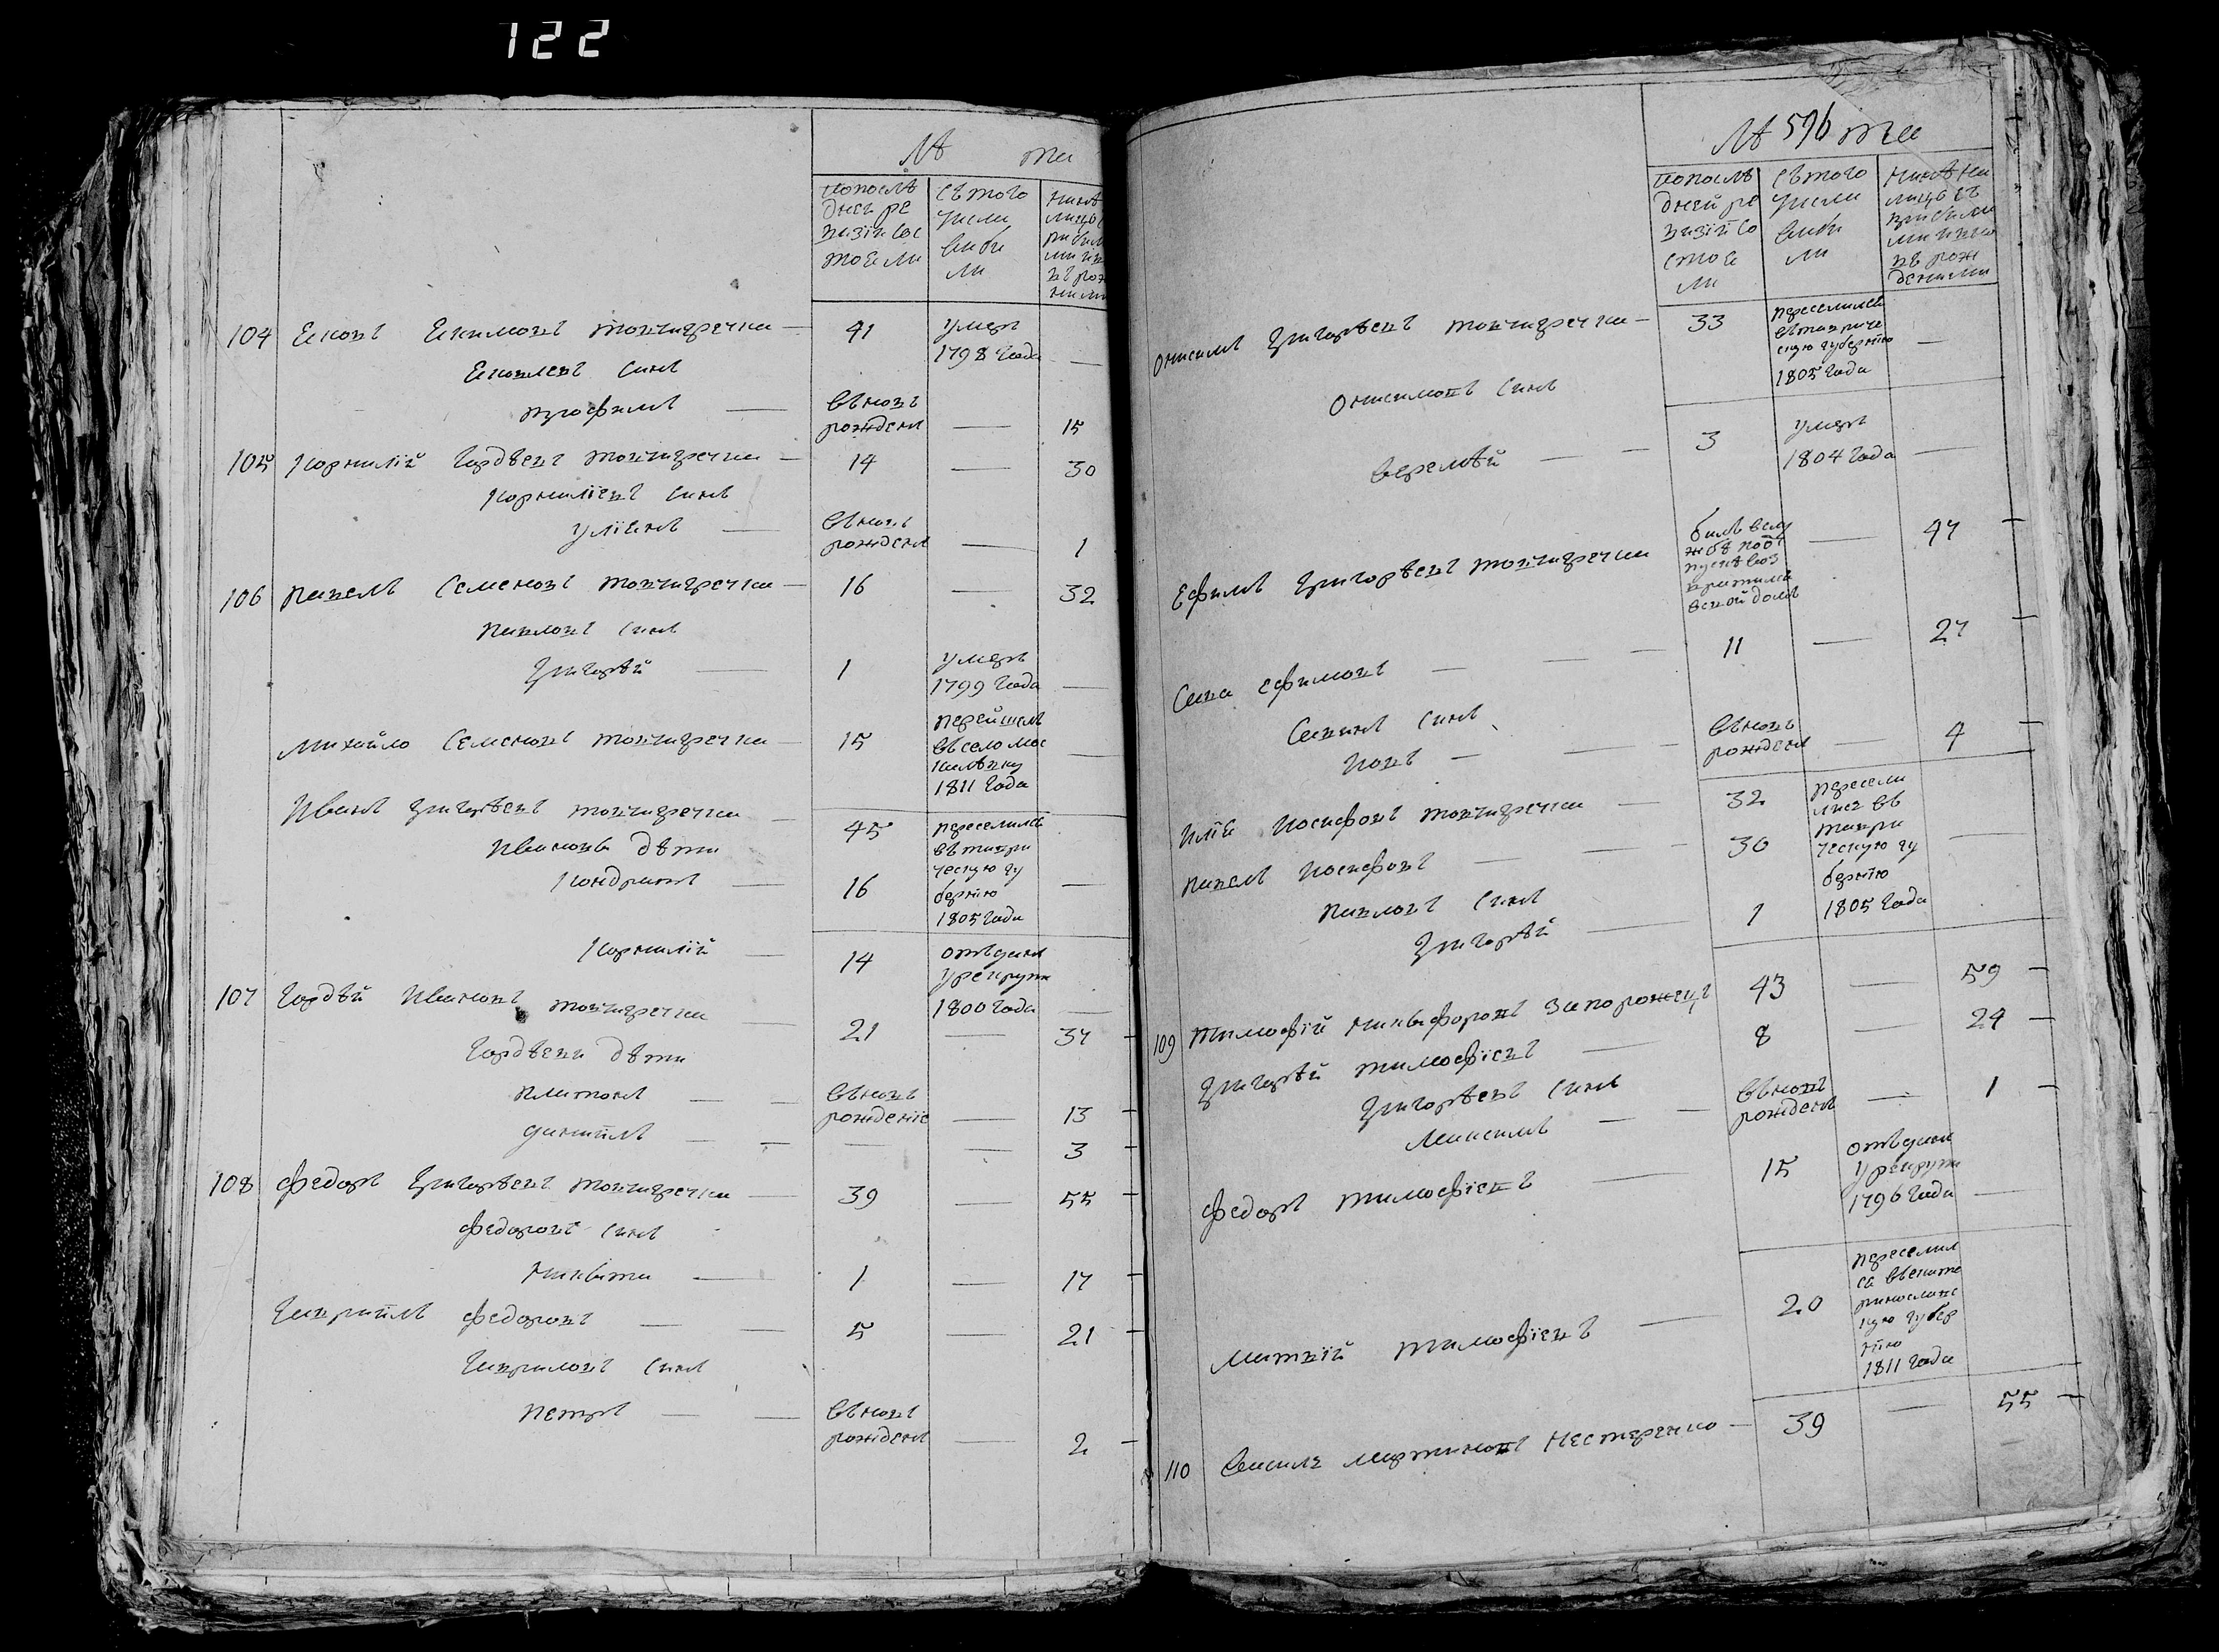 122
Лѣ та
попослѣ
днеи ре
визіи сос
тояли
съ того
числа
выбы
ли
104 Яковъ Якимовъ товчигречка — 41 умеръ
1798 года —
Яковлевъ сынъ
трофимъ — вновь
рожденъ — 15
105 Корнилій Гордѣевъ товчигречка — 14 — 30
Корниліевъ сынъ
уліянъ — вновь
рожденъ — 1
106 Павелъ Семеновъ товчигречка — 16 — 32
Павловъ сынъ
Григорѣй — 1 умеръ
1799 года —
Михайло Семеновъ товчигречка — 15 перейшелъ
въ село мос
калѣвку
1811 года —
Иванъ Григорѣевъ товчигречка — 45 переселилсь
въ таври
ческую гу
бернію
1805 года
Ивановы дѣти
Кондратъ — 16 —
Корнилій — 14 отъданъ
у рекруты
1800 года —
107 Гордѣй Ивановъ товчигречка — 21 — 37
Гордѣеви дѣти
Платонъ — — вновь
рожденіе — 13
даниїлъ — — — — 3
108 Федоръ Григорѣевъ товчигречка — 39 — 55
Федоровъ сынъ
Никита — 1 — 17
Гавриїлъ Федоровъ — — 5 — 21
Гавриловъ сынъ
Петръ — — вновь
рожденъ — 2
Лѣ 596 та
попослѣ
дней ре
визій со
стоя
ли
съ того
числа
выбы
ли
нинѣ на
лицо съ
прибыли
ми и вно
въ рож
денними
Онисимъ Григорѣевъ товчигречка — 33 переселилсь
въ тавриче
скую губернію
1805 года —
Онисимовъ сынъ
Веремѣй — — 3 умеръ
1804 года —
Ефимъ Григорѣевъ товчигречка билъ в слу
жбѣ по от
пускѣ воз
вратился
в свой домъ — 47
Сава Ефимовъ — — — 11 — 27
Савинъ сынъ
Иовъ — — вновь
рожденъ — 4
Илія Иосифовъ товчигречка — 32 пересели
лися въ
таври
ческую гу
бернію
1805 года
Павелъ Иосифовъ — — 30 —
Павловъ сынъ
Григорѣй — 1
109 Тимофій Никифоровъ Запорожецъ 43 — 59
Григорѣй тимофіевъ — 8 — 24
Григорѣевъ сынъ
Максимъ — — вновь
рожденъ — 1
Федоръ тимофіевъ — 15 отъданъ
у рекруты
1796 года —
Матвій тимофіевъ — 20 переселил
ся въ екате
ринославс
кую губер
нію
1811 года
110 Василь мартиновъ Нестеренко — 39 — 55